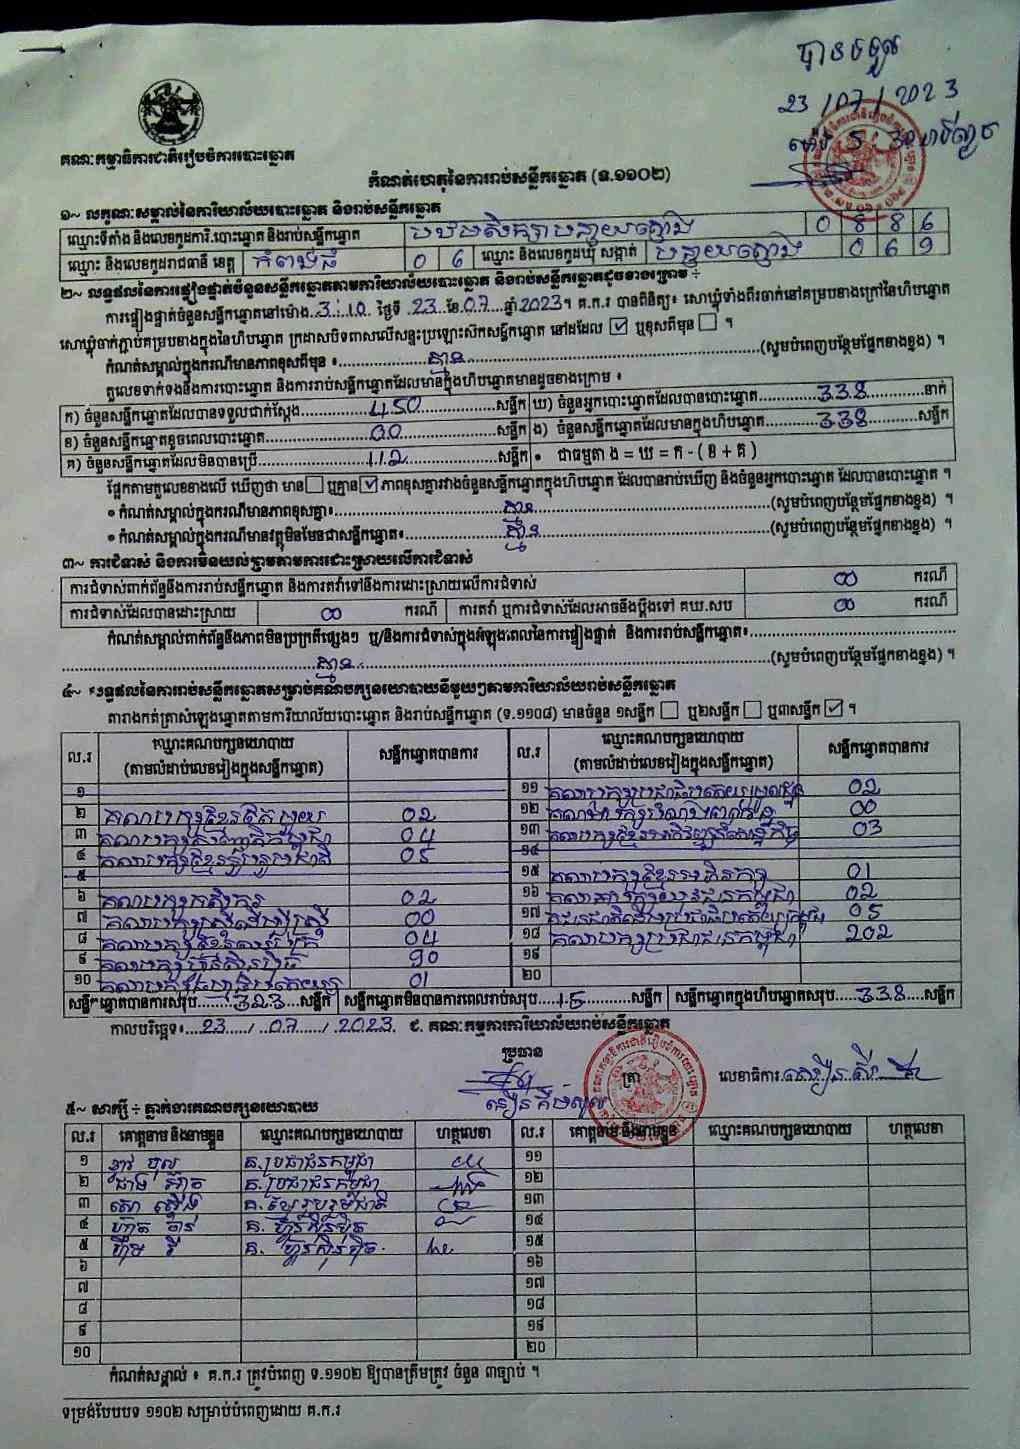 បានទទួល
23/07/2023
ម៉ោង 5
គណៈកម្មាធិការជាតិរៀបចំការបោះឆ្នោត
កំណត់ហេតុនៃការរាប់សន្លឹកឆ្នោត (ទ.១១០២)
១~ លក្ខណៈសម្គាល់នៃការិយាល័យបោះឆ្នោត និងរាប់សន្លឹកឆ្នោត
ឈ្មោះទីតាំង និងលេខកូដការិ.បោះឆ្នោត និងរាប់សន្លឹកឆ្នោត បឋមសិក្សាបន្ទាយ 0 8 8 6
ឈ្មោះ និងលេខកូដរាជធានី ខេត្ត កំពង់ធំ 0 6 ឈ្មោះ និងលេខកូដឃុំ សង្កាត់ 0 6 9
២~ លទ្ធផលនៃការផ្ទៀងផ្ទាត់ចំនួនសន្លឹកឆ្នោតតាមការិយាល័យបោះឆ្នោត និងរាប់សន្លឹកឆ្នោតដូចខាងក្រោម ÷
ការផ្ទៀងផ្ទាត់ចំនួនសន្លឹកឆ្នោតនៅម៉ោង 3:10 ថ្ងៃទី 23 ខែ 07 ឆ្នាំ 2023។ គ.ក.រ បានពិនិត្យ៖ សោឃ្នុំទាំងពីរចាក់នៅគម្របខាងក្រៅនៃហិបឆ្នោត
សោឃ្នុំចាក់ភ្ជាប់គម្របខាងក្នុងនៃហិបឆ្នោត ក្រដាសបិទពាសលើសន្ទះប្រឡោះស៊កសន្លឹកឆ្នោត នៅដដែល ☑ ឬខុសពីមុន ☐ ។
កំណត់សម្គាល់ក្នុងករណីមានភាពខុសពីមុន ៖ គ្មាន (សូមបំពេញបន្ថែមផ្នែកខាងខ្នង) ។
តួលេខទាក់ទងនឹងការបោះឆ្នោត និងការរាប់សន្លឹកឆ្នោតដែលមានក្នុងហិបឆ្នោតមានដូចខាងក្រោម ៖
ក) ចំនួនសន្លឹកឆ្នោតដែលបានទទួលជាក់ស្តែង 450 សន្លឹក ឃ) ចំនួនអ្នកបោះឆ្នោតដែលបានបោះឆ្នោត 338 នាក់
ខ) ចំនួនសន្លឹកឆ្នោតខូចពេលបោះឆ្នោត 00 សន្លឹក ង) ចំនួនសន្លឹកឆ្នោតដែលមានក្នុងហិបឆ្នោត 338 សន្លឹក
គ) ចំនួនសន្លឹកឆ្នោតដែលមិនបានប្រើ 112 សន្លឹក • ជាធម្មតា ង = ឃ = ក - ( ខ + គ )
ផ្អែកតាមតួលេខខាងលើ ឃើញថា មាន ☐ ឬគ្មាន ☑ ភាពខុសគ្នារវាងចំនួនសន្លឹកឆ្នោតក្នុងហិបឆ្នោត ដែលបានរាប់ឃើញ និងចំនួនអ្នកបោះឆ្នោត ដែលបានបោះឆ្នោត ។
• កំណត់សម្គាល់ក្នុងករណីមានភាពខុសគ្នា៖ គ្មាន (សូមបំពេញបន្ថែមផ្នែកខាងខ្នង) ។
• កំណត់សម្គាល់ក្នុងករណីមានវត្ថុមិនមែនជាសន្លឹកឆ្នោត៖ គ្មាន (សូមបំពេញបន្ថែមផ្នែកខាងខ្នង) ។
៣~ ការជំទាស់ និងការមិនយល់ព្រមតាមការដោះស្រាយលើការជំទាស់
ការជំទាស់ពាក់ព័ន្ធនឹងការរាប់សន្លឹកឆ្នោត និងការតវ៉ាទៅនឹងការដោះស្រាយលើការជំទាស់ 00 ករណី
ការជំទាស់ដែលបានដោះស្រាយ 00 ករណី ការតវ៉ា ឬការជំទាស់ដែលអាចនឹងប្តឹងទៅ គឃ.សប 00 ករណី
កំណត់សម្គាល់ពាក់ព័ន្ធនឹងភាពមិនប្រក្រតីផ្សេងៗ ឬ/និងការជំទាស់ក្នុងអំឡុងពេលនៃការផ្ទៀងផ្ទាត់ និងការរាប់សន្លឹកឆ្នោត៖
គ្មាន (សូមបំពេញបន្ថែមផ្នែកខាងខ្នង) ។
៤~ លទ្ធផលនៃការរាប់សន្លឹកឆ្នោតសម្រាប់គណបក្សនយោបាយនីមួយៗតាមការិយាល័យរាប់សន្លឹកឆ្នោត
តារាងកត់ត្រាសំឡេងឆ្នោតតាមការិយាល័យបោះឆ្នោត និងរាប់សន្លឹកឆ្នោត (ទ.១១០៨) មានចំនួន ១សន្លឹក ☐ ឬ២សន្លឹក ☐ ឬ៣សន្លឹក ☑ ។
ល.រ ឈ្មោះគណបក្សនយោបាយ (តាមលំដាប់លេខរៀងក្នុងសន្លឹកឆ្នោត) សន្លឹកឆ្នោតបានការ ល.រ ឈ្មោះគណបក្សនយោបាយ (តាមលំដាប់លេខរៀងក្នុងសន្លឹកឆ្នោត) សន្លឹកឆ្នោតបានការ
១ ១១ 02
២ គណបក្សខ្មែរតែមួយ 02 ១២ 00
៣ 04 ១៣ 03
៤ គណបក្សខ្មែររួបរួមជាតិ 05 ១៤
៥ ១៥ 01
៦ គណបក្សកសិករ 02 ១៦ គណបក្សយុវជនកម្ពុជា 02
៧ គណបក្សស្ត្រីដើម្បីស្ត្រី 00 ១៧ 05
៨ 04 ១៨ គណបក្សប្រជាជនកម្ពុជា 202
៩ គណបក្សហ៊្វុនស៊ិនប៉ិច 90 ១៩
១០ 01 ២០
សន្លឹកឆ្នោតបានការសរុប 323 សន្លឹក សន្លឹកឆ្នោតមិនបានការពេលរាប់សរុប 15 សន្លឹក សន្លឹកឆ្នោតក្នុងហិបឆ្នោតសរុប 338 សន្លឹក
កាលបរិច្ឆេទ៖ 23 / 07 / 2023 ជ. គណៈកម្មការការិយាល័យរាប់សន្លឹកឆ្នោត
ប្រធាន
ត្រា
លេខាធិការ
៥~ សាក្សី ÷ ភ្នាក់ងារគណបក្សនយោបាយ
ល.រ គោត្តនាម និងនាមខ្លួន ឈ្មោះគណបក្សនយោបាយ ហត្ថលេខា ល.រ គោត្តនាម និងនាមខ្លួន ឈ្មោះគណបក្សនយោបាយ ហត្ថលេខា
១ គ.ប្រជាជនកម្ពុជា ១១
២ គ.ប្រជាជនកម្ពុជា ១២
៣ គ.ខ្មែររួបរួមជាតិ ១៣
៤ គ. ហ៊្វុនស៊ិនប៉ិច ១៤
៥ គ. ហ៊្វុនស៊ិនប៉ិច ១៥
៦ ១៦
៧ ១៧
៨ ១៨
៩ ១៩
១០ ២០
កំណត់សម្គាល់ ៖ គ.ក.រ ត្រូវបំពេញ ទ.១១០២ ឱ្យបានត្រឹមត្រូវ ចំនួន ៣ច្បាប់ ។
ទម្រង់បែបបទ ១១០២ សម្រាប់បំពេញដោយ គ.ក.រ